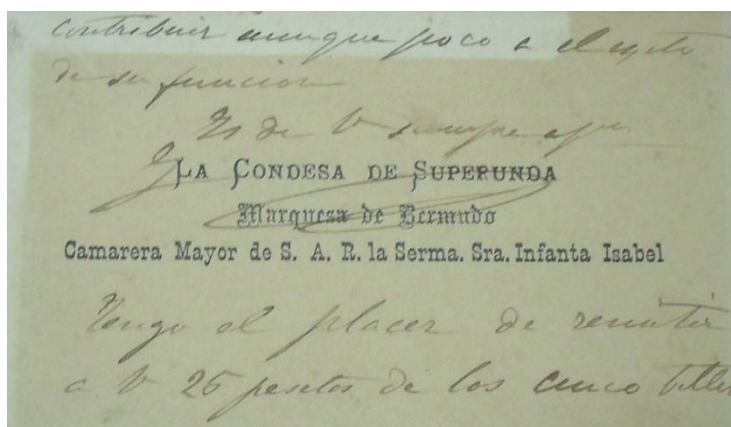 contribuir aunque poco a el exito
de su funcion
Es de V siempre afma
LA CONDESA DE SUPERUNDA
Marquesa de Bermudo
Camarera Mayor de S. A. R. la Serma. Sra. Infanta Isabel
Tengo el placer de remitir
a V 25 pesetas de los cinco